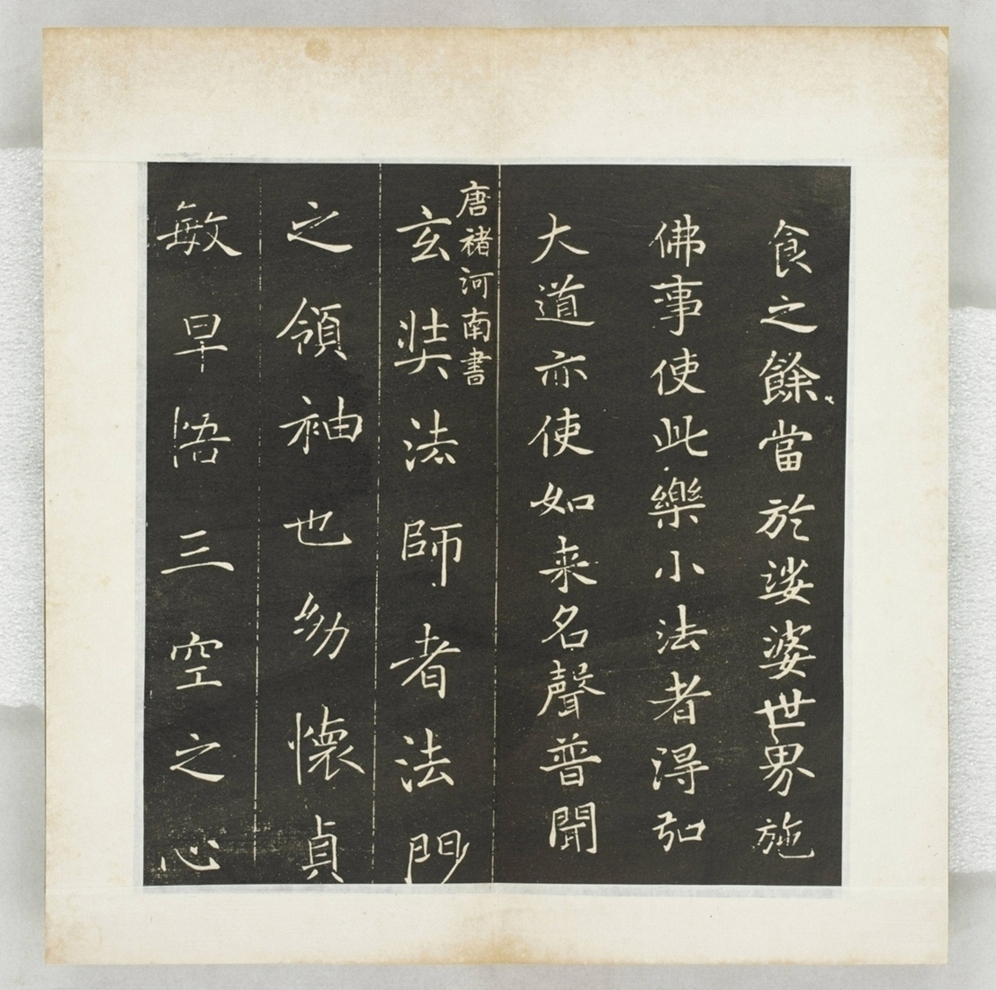 食之餘當於娑婆世界施
佛事使此樂小法者得弘
大道亦使如来名聲普聞
唐褚河南書
玄奘法師者法門
之領袖也幼懷貞
敏早悟三空之心